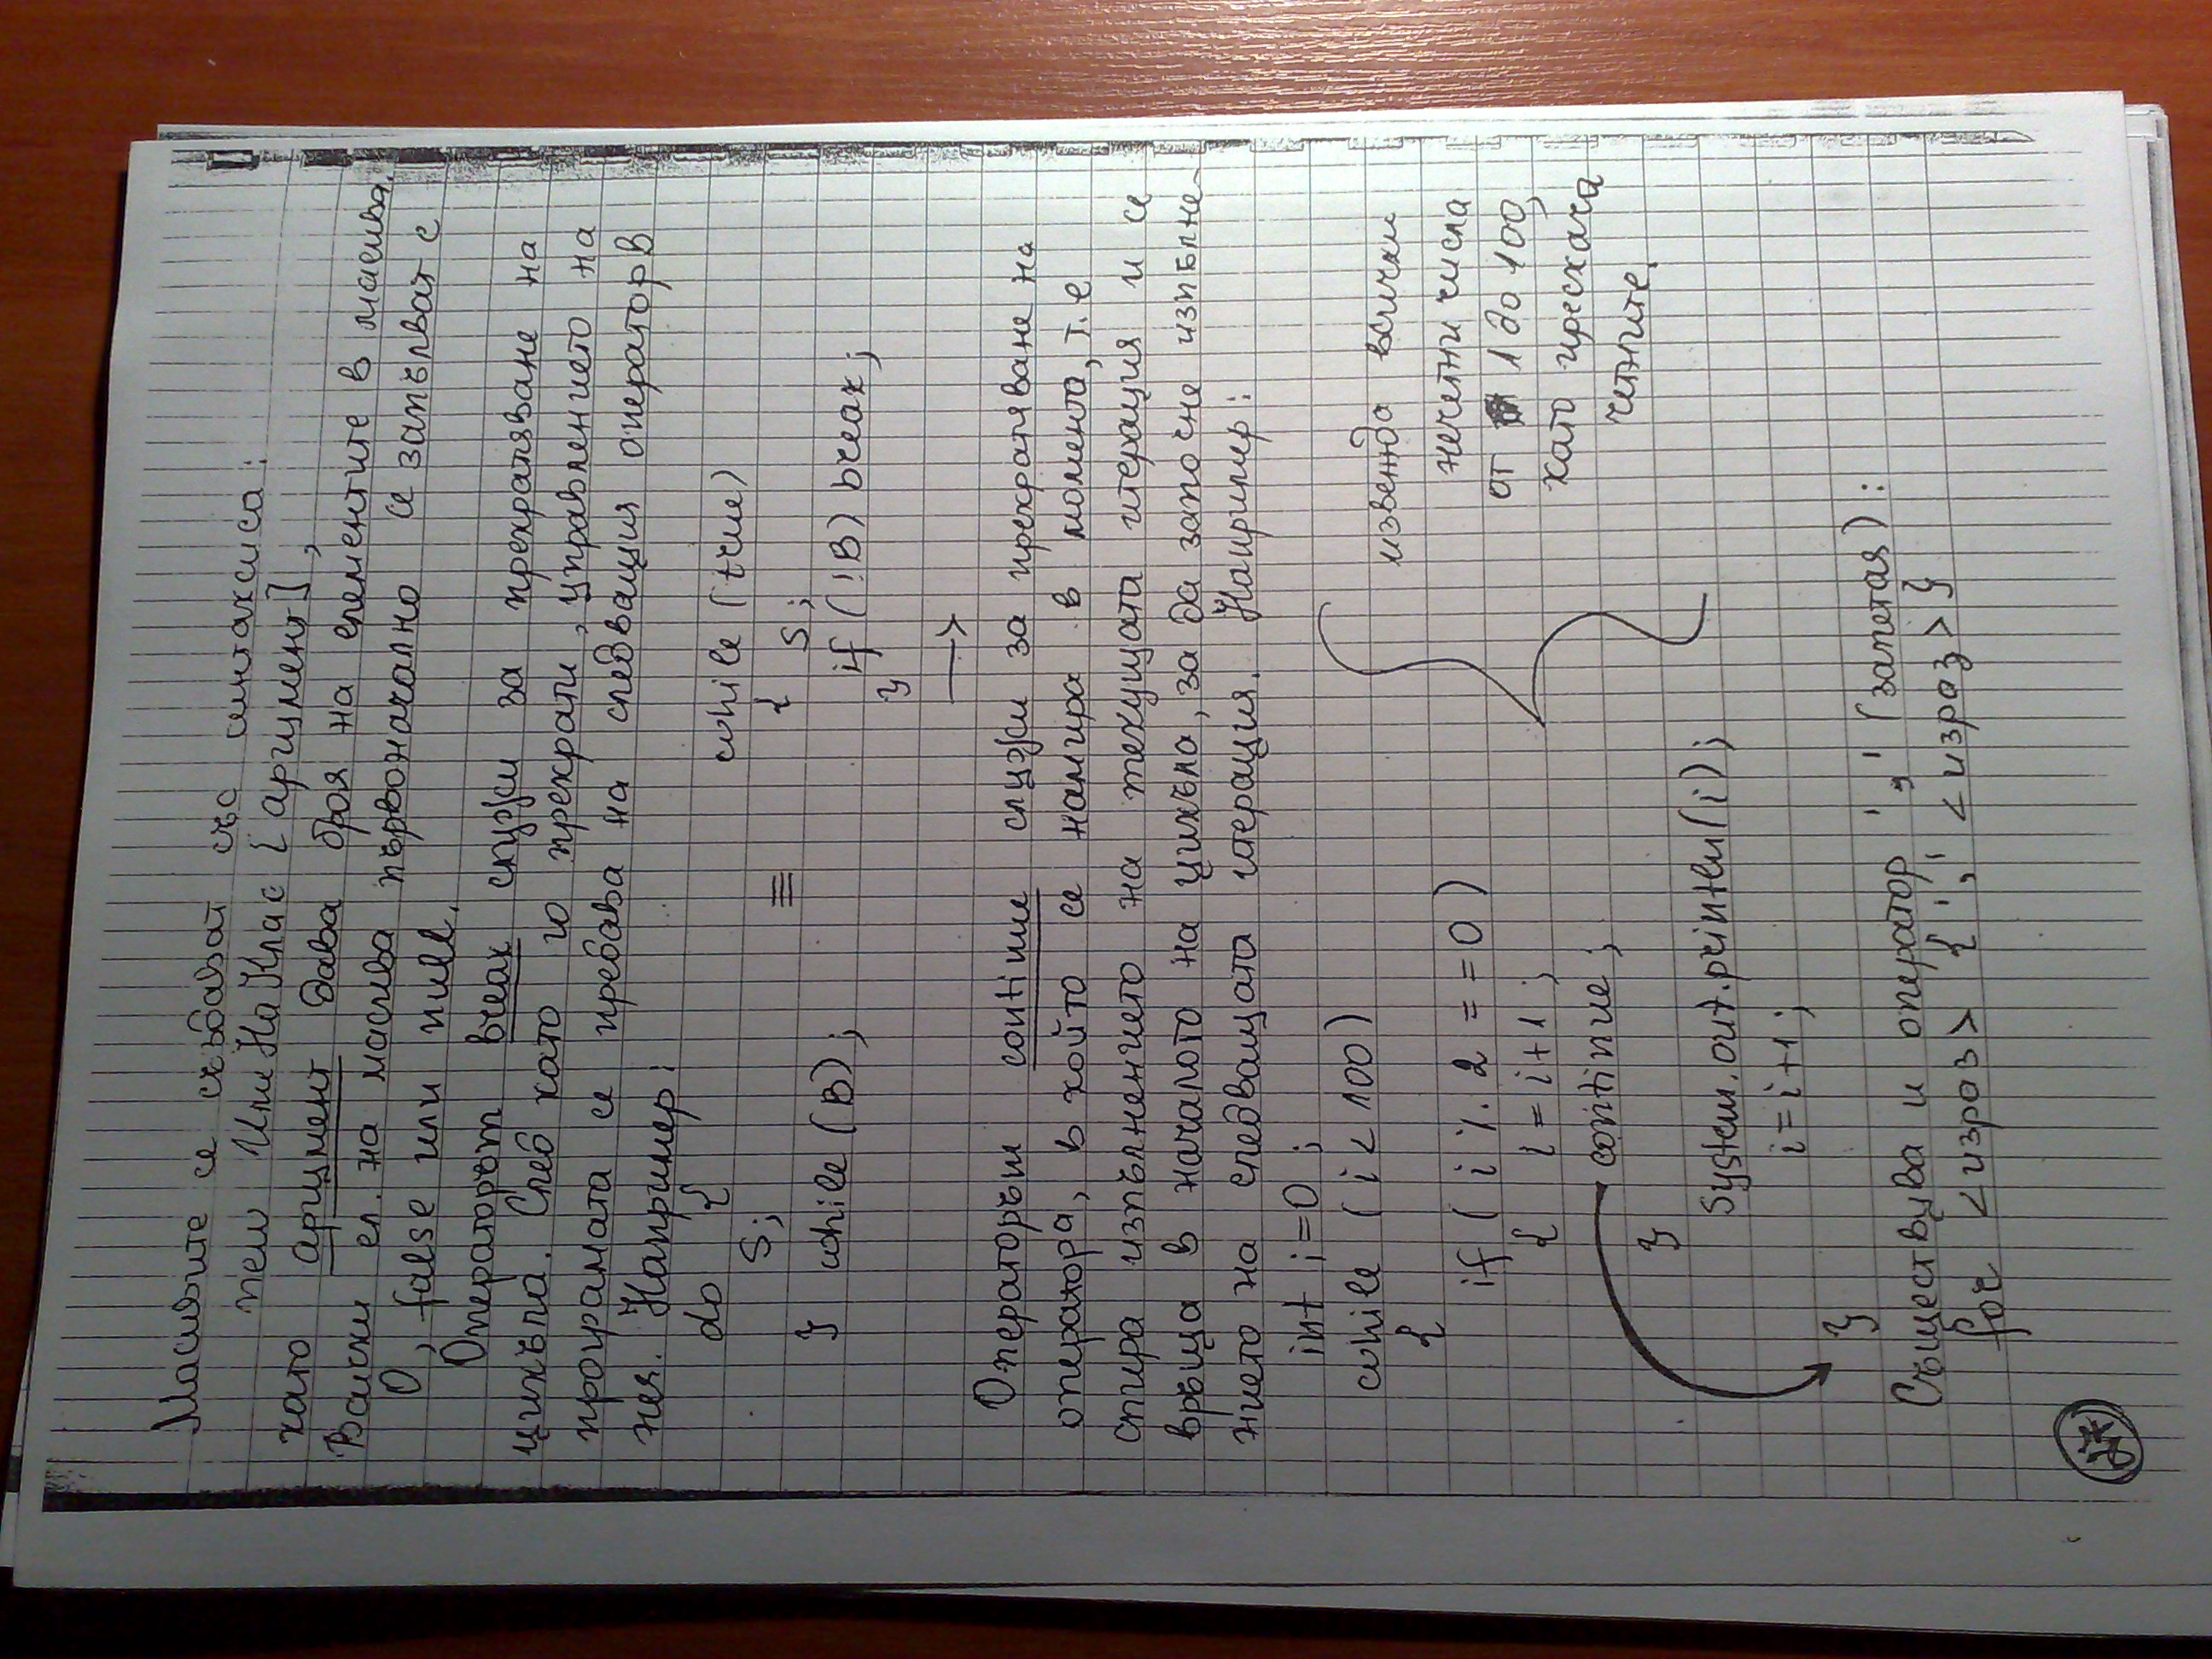 Масивите се създават със синтаксиса:
new ИмеНаКлас [аргумент],
като аргумент дава броя на елементите в масива.
Всички ел. на масива първоначално се запълват с
0, false или null.
Операторът break служи за прекратяване на
цикъла. След като го прекрати, управлението на
програмата се предава на следващия оператор в
нея. Например:
do { while (true)
S; { S;
} while (B); ≡ if (!B) break;
}
→
Операторът continue служи за прекратяване на
оператора, в който се намира в момента, т.е
спира изпълнението на текущата итерация и се
връща в началото на цикъла, за да започне изпълне-
нието на следващата итерация. Например:
int i=0;
while (i < 100) извежда всички
{
if (i % 2 == 0) нечетни числа
{ i = i+1; от 1 до 100,
continue; като прескача
} четните.
System.out.println(i);
i=i+1;
}
Съществува и оператор ',' (запетая):
for <израз> { ',' <израз> }